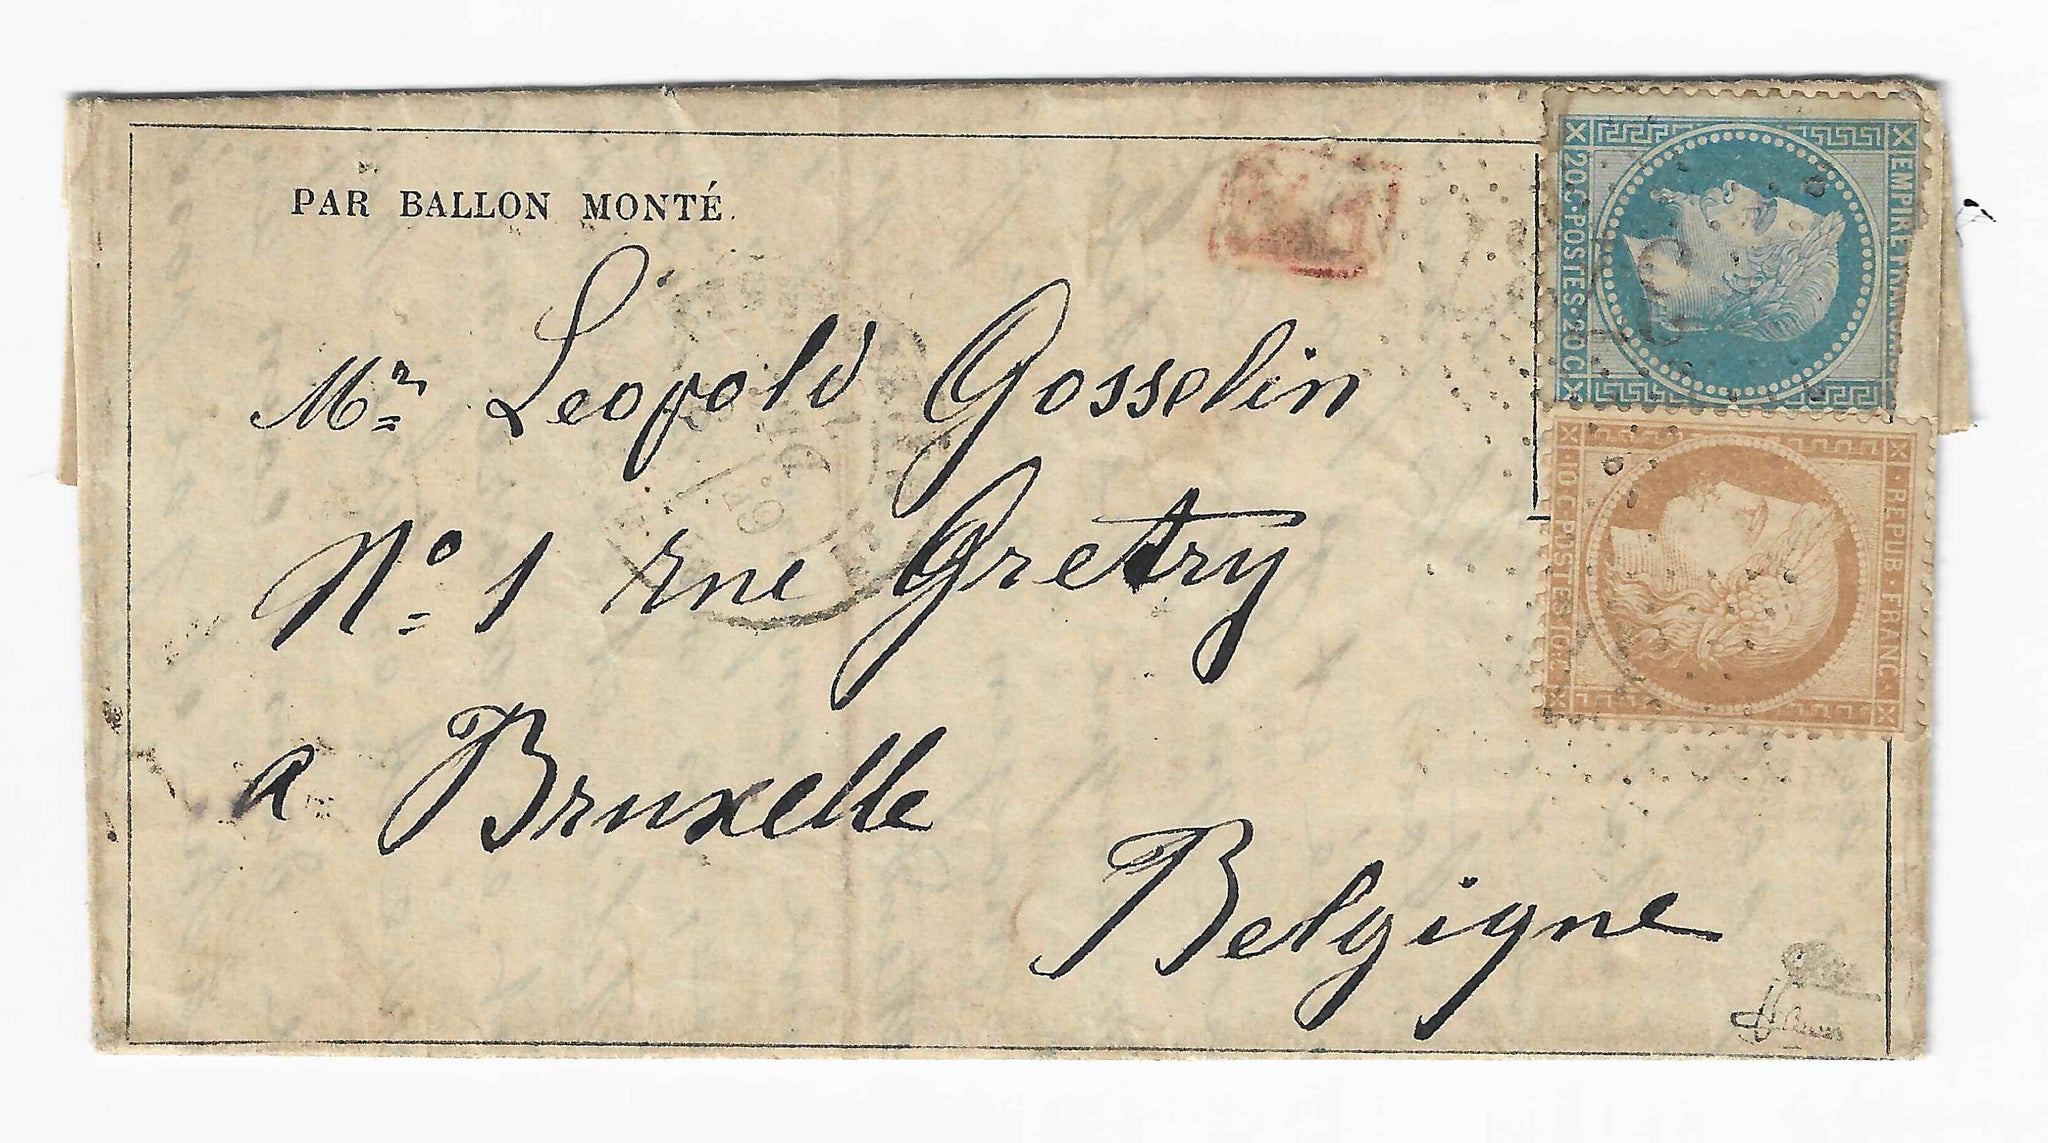 PAR BALLON MONTÉ.
Mr. Leopold Gosselin
No. 1 rue Gretry
a Bruxelle
Belgique
EMPIRE FRANCAIS
20 C · POSTES · 20 C
REPUB · FRANC ·
10 C POSTES 10 C